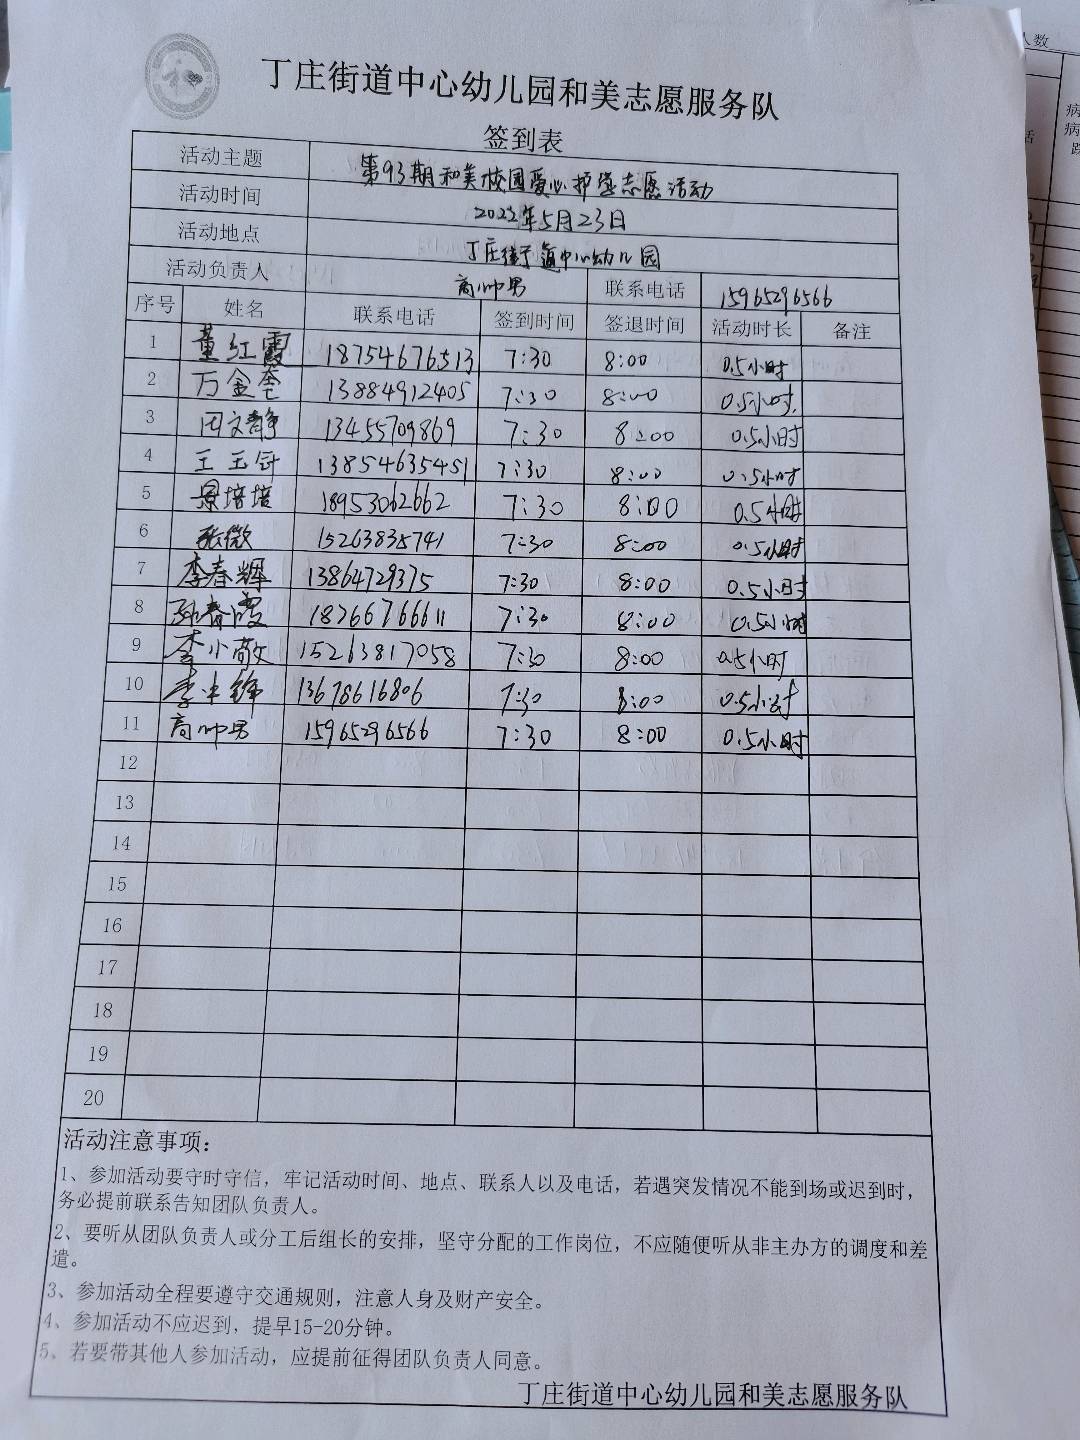 丁庄街道中心幼儿园和美志愿服务队
签到表
活动主题 第93期和美校园爱心护学志愿活动
活动时间 2022年5月23日
活动地点 丁庄街道中心幼儿园
活动负责人 高帅男 联系电话 15965296566
序号 姓名 联系电话 签到时间 签退时间 活动时长 备注
1 董红霞 18754676513 7:30 8:00 0.5小时
2 万金奎 13884912405 7:30 8:00 0.5小时
3 田文静 13455709869 7:30 8:00 0.5小时
4 王玉 13854635451 7:30 8:00 0.5小时
5 景培培 18953062662 7:30 8:00 0.5小时
6 张微 15263835741 7:30 8:00 0.5小时
7 李春辉 13864729375 7:30 8:00 0.5小时
8 孙春霞 18266766611 7:30 8:00 0.5小时
9 李小敬 15263817058 7:30 8:00 0.5小时
10 李中锋 13678616806 7:30 8:00 0.5小时
11 高帅男 15965296566 7:30 8:00 0.5小时
12
13
14
15
16
17
18
19
20
活动注意事项：
1、参加活动要守时守信，牢记活动时间、地点、联系人以及电话，若遇突发情况不能到场或迟到时，
务必提前联系告知团队负责人。
2、要听从团队负责人或分工后组长的安排，坚守分配的工作岗位，不应随便听从非主办方的调度和差
遣。
3、参加活动全程要遵守交通规则，注意人身及财产安全。
4、参加活动不应迟到，提早15-20分钟。
5、若要带其他人参加活动，应提前征得团队负责人同意。
丁庄街道中心幼儿园和美志愿服务队
人数